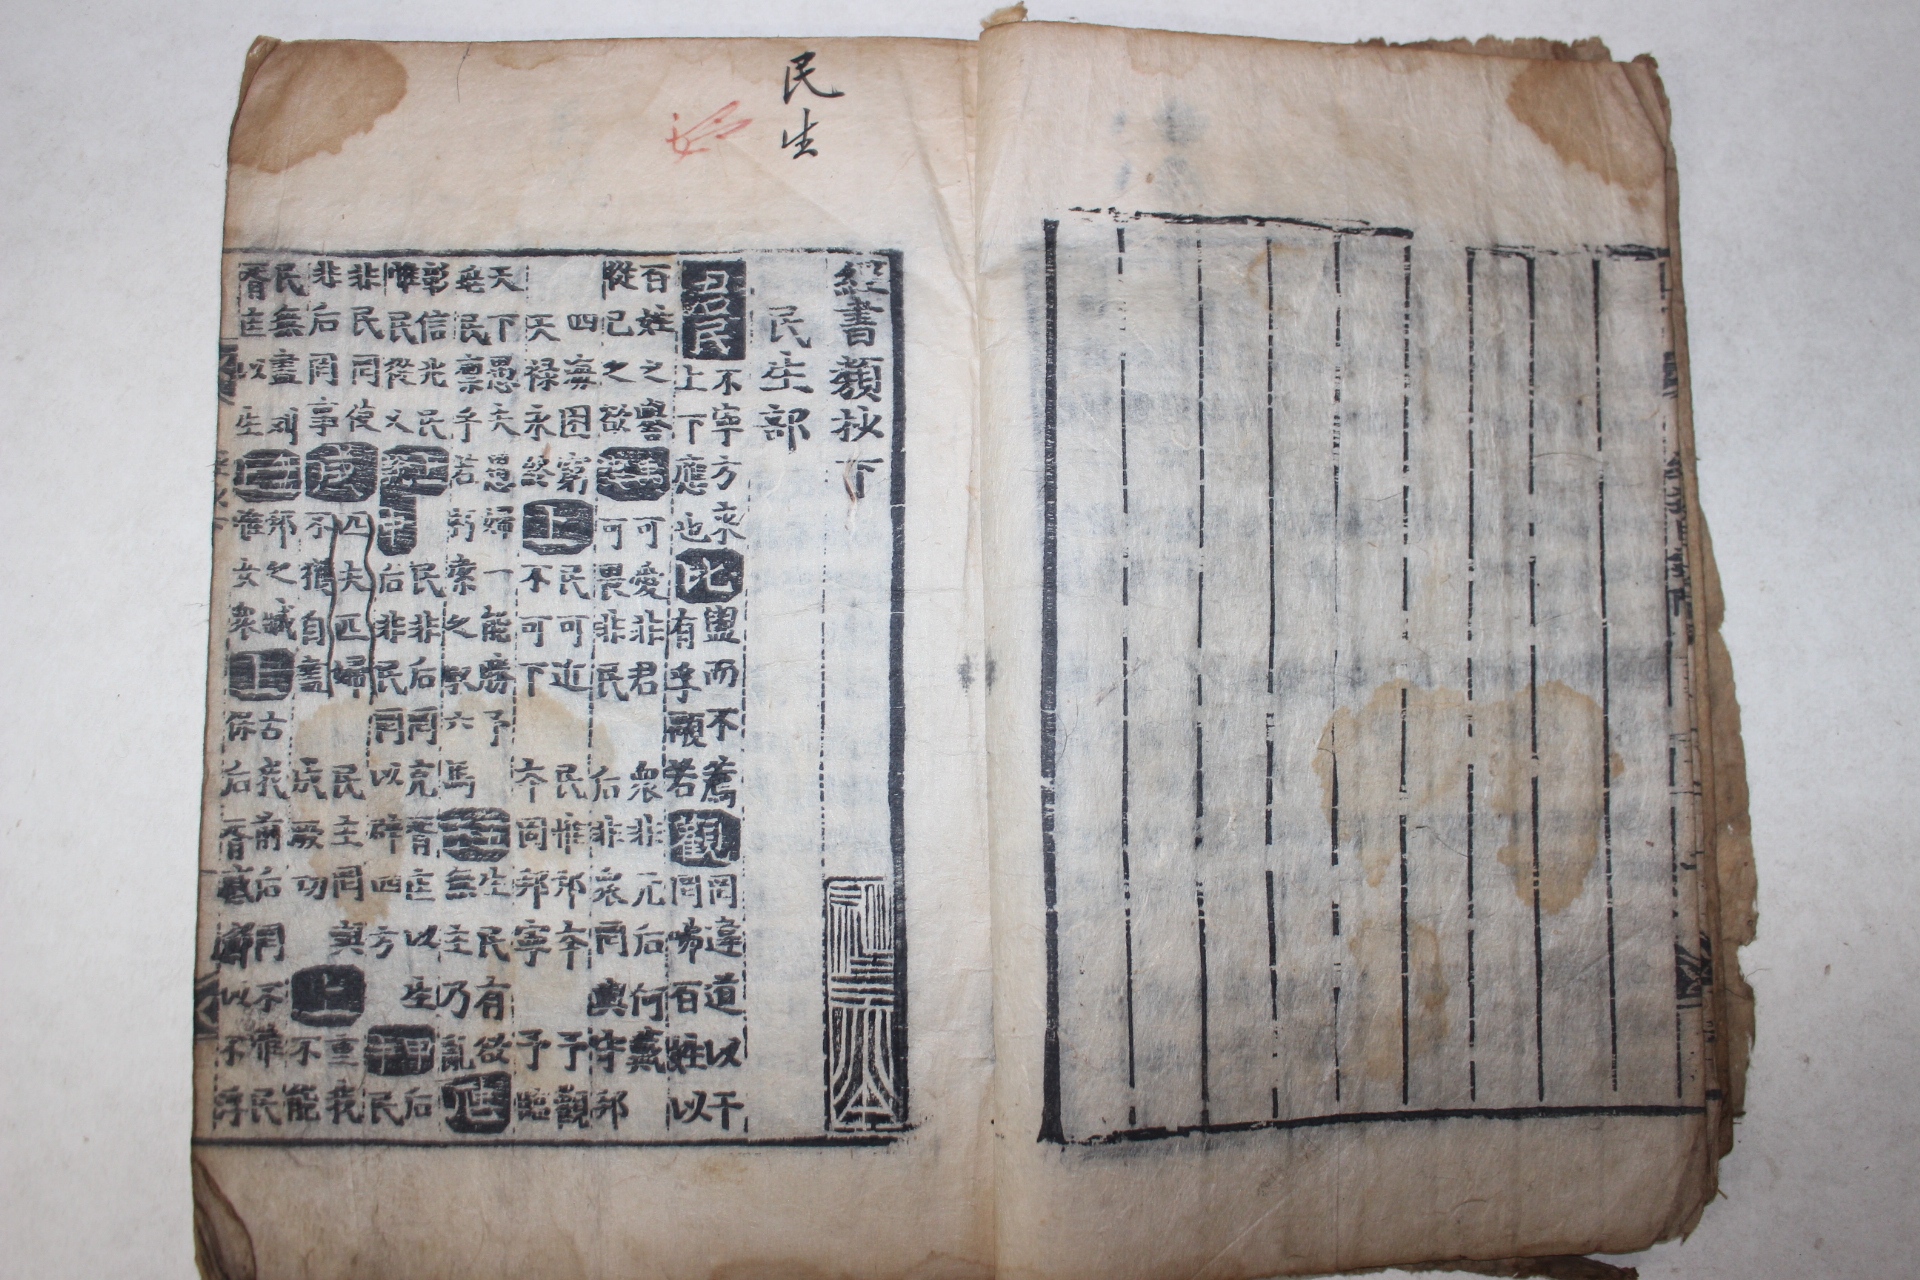 民生
經書類抄下
民生部
君民
不寧方來
上下應也
比
盥而不薦
有孚顒若
觀
罔違道以干
罔咈百姓以
百姓之譽
從己之欲
可愛非君
可畏非民
衆非元后何戴
后非衆罔與守邦
四海困窮
天祿永終
上
民可近
不可下
民惟邦本
本固邦寧
予觀
予臨
天下愚夫愚婦一能勝予
兆民懍乎若朽索之馭六馬
生民有欲
無主乃亂
彰信兆民
惟民從乂
中
民非后罔克胥匡以生
后非民罔以辟四方
后
民
非民罔使
非后罔事
匹夫匹婦
不獲自盡
民主罔與
成厥功
上
重我
不能
民無盡劉
胥匡以生
邦之臧
惟女衆
上
古我前后罔不惟民
保后胥慼鮮以不浮